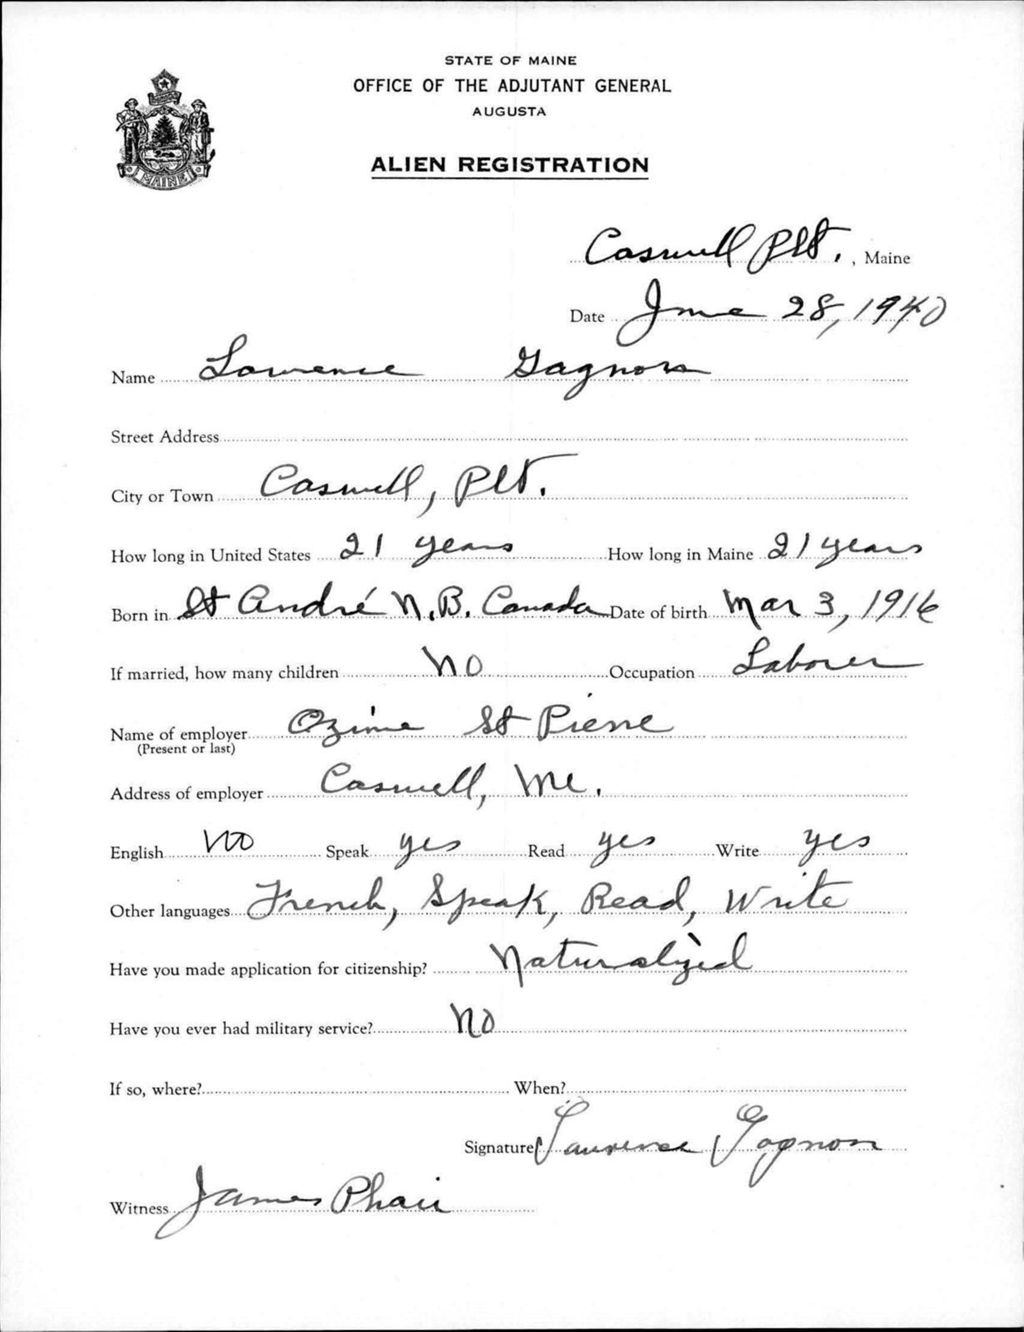 STATE OF MAINE
OFFICE OF THE ADJUTANT GENERAL
AUGUSTA
MAINE
ALIEN REGISTRATION
Caswell Plt. , Maine
Date June 28, 1940
Name Lawrence Gagnon
Street Address
City or Town Caswell, Plt.
How long in United States 21 years How long in Maine 21 years
Born in St André N.B. Canada Date of birth Mar 3, 1916
If married, how many children NO Occupation Laborer
Name of employer Ozime St Pierre
(Present or last)
Address of employer Caswell, Me.
English NO Speak yes Read yes Write yes
Other languages French, Speak, Read, Write
Have you made application for citizenship? Naturalized
Have you ever had military service? NO
If so, where? When?
Signature Laurence Gagnon
Witness James Phair